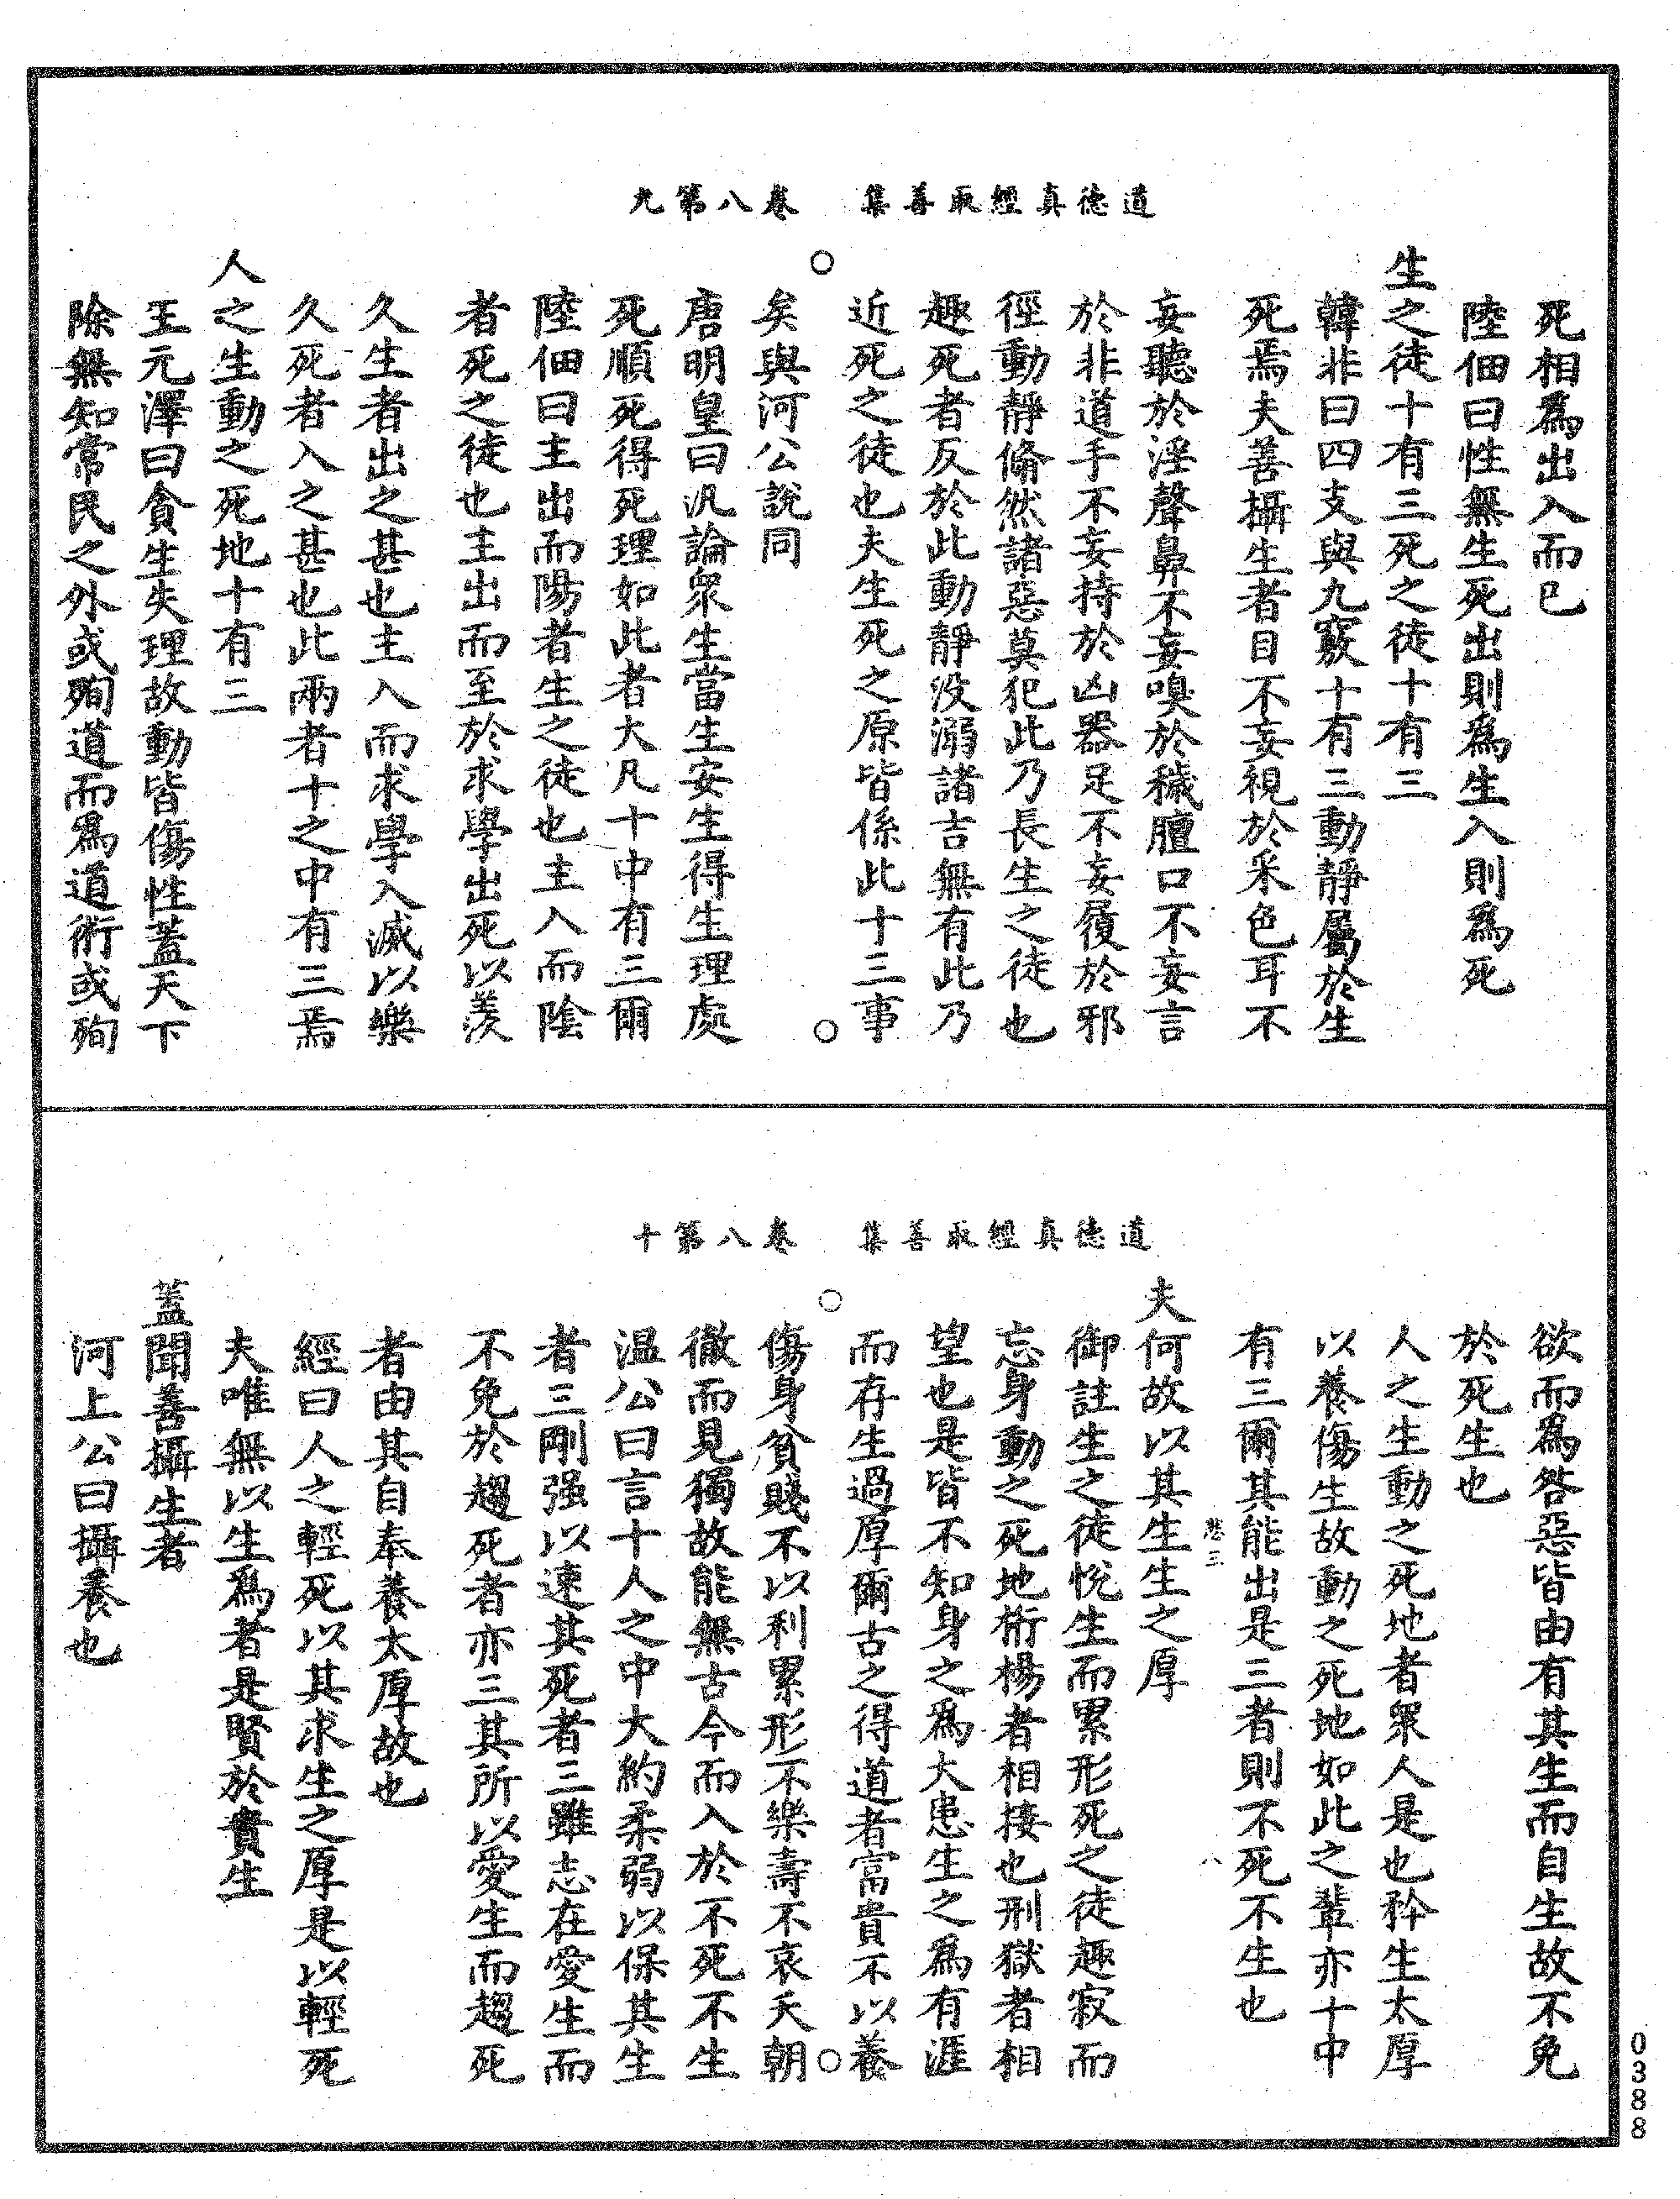 道德真經取善集　卷八第九
死相爲出入而已
陸佃曰性無生死出則爲生入則爲死
生之徒十有三死之徒十有三
韓非曰四支與九竅十有三動靜屬於生
死焉夫善攝生者目不妄視於釆色耳不
妄聽於淫聲鼻不妄嗅於穢膻口不妄言
於非道手不妄持於凶器足不妄履於邪
徑動靜翛然諸惡莫犯此乃長生之徒也
趣死者反於此動靜没溺諸吉無有此乃
近死之徒也夫生死之原皆係此十三事
矣與河公說同
唐明皇曰汎論衆生當生安生得生理處
死順死得死理如此者大凡十中有三爾
陸佃曰主出而陽者生之徒也主入而陰
者死之徒也主出而至於求學出死以羨
久生者出之甚也主入而求學入滅以樂
久死者入之甚也此兩者十之中有三焉
人之生動之死地十有三
王元澤曰貪生失理故動皆傷性蓋天下
除無知常民之外或殉道而爲道術或殉
道德真經取善集　卷八第十
欲而爲咎惡皆由有其生而自生故不免
於死生也
人之生動之死地者衆人是也矜生太厚
以養傷生故動之死地如此之輩亦十中
有三爾其能出是三者則不死不生也
夫何故以其生生之厚
御註生之徒悅生而累形死之徒趣寂而
忘身動之死地桁楊者相接也刑獄者相
望也是皆不知身之爲大患生之爲有涯
而存生過厚爾古之得道者富貴不以養
傷身貧賤不以利累形不樂壽不哀夭朝
徹而見獨故能無古今而入於不死不生
温公曰言十人之中大約柔弱以保其生
者三剛强以速其死者三雖志在愛生而
不免於趨死者亦三其所以愛生而趨死
者由其自奉養太厚故也
經曰人之輕死以其求生之厚是以輕死
夫唯無以生爲者是賢於貴生
蓋聞善攝生者
河上公曰攝養也
0388